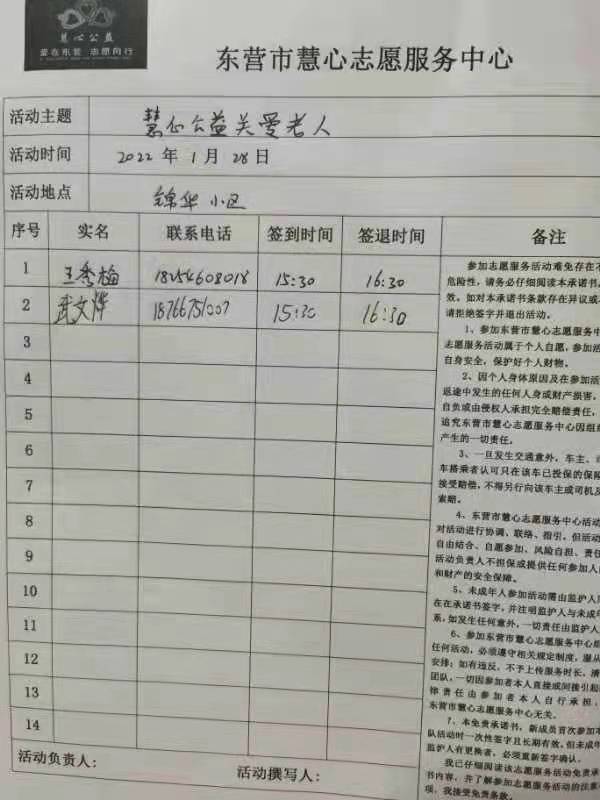 慧心公益
爱在东营 志愿同行
东营市慧心志愿服务中心
活动主题 慧心公益关爱老人
活动时间 2022年1月28日
活动地点 锦华小区
序号 实名 联系电话 签到时间 签退时间 备注
1 王秀梅 18254608018 15:30 16:30
2 武文烨 18766751007 15:30 16:30
3
4
5
6
7
8
9
10
11
12
13
14
参加志愿服务活动难免存在不
危险性,请务必仔细阅读本承诺书。
效。如对本承诺书条款存在异议或不
请拒绝签字并退出活动。
1、参加东营市慧心志愿服务中
志愿服务活动属于个人自愿,参加活
自身安全,保护好个人财物。
2、因个人身体原因及在参加活
返途中发生的任何人身或财产损害,
自负或由侵权人承担完全赔偿责任,
追究东营市慧心志愿服务中心因组织
产生的一切责任。
3、一旦发生交通意外,车主、
车搭乘者认可只在该车已投保的保险
接受赔偿,不得另行向该车主或司机及
索赔。
4、东营市慧心志愿服务中心活动
对活动进行协调、联络、指引,但活动
自由结合、自愿参加、风险自担、责任
活动负责人不担保或提供任何参加人
和财产的安全保障。
5、未成年人参加活动需由监护人
在在承诺书签字,并注明监护人与未成年
系,如发生任何意外,一切责任由监护人
6、参加东营市慧心志愿服务中心组
任何活动,必须遵守相关规定制度,服从
安排;如有违反,不予上传服务时长,清
团队,一切因参加者本人直接或间接引起
律责任由参加者本人自行承担,
东营市慧心志愿服务中心无关。
7、本免责承诺书,新成员首次参加本
队活动时一次性签字且长期有效,但未成年
监护人有更换者,必须重新签字确认。
我已仔细阅读该志愿服务活动免责承
书内容,并了解参加志愿服务活动的注意
项,我接受免责条款。
活动负责人: 活动撰写人: